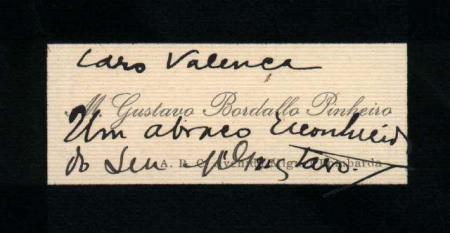 Caro Valença
M. Gustavo Bordallo Pinheiro
Um abraço reconhecido
do seu M. Gustavo.